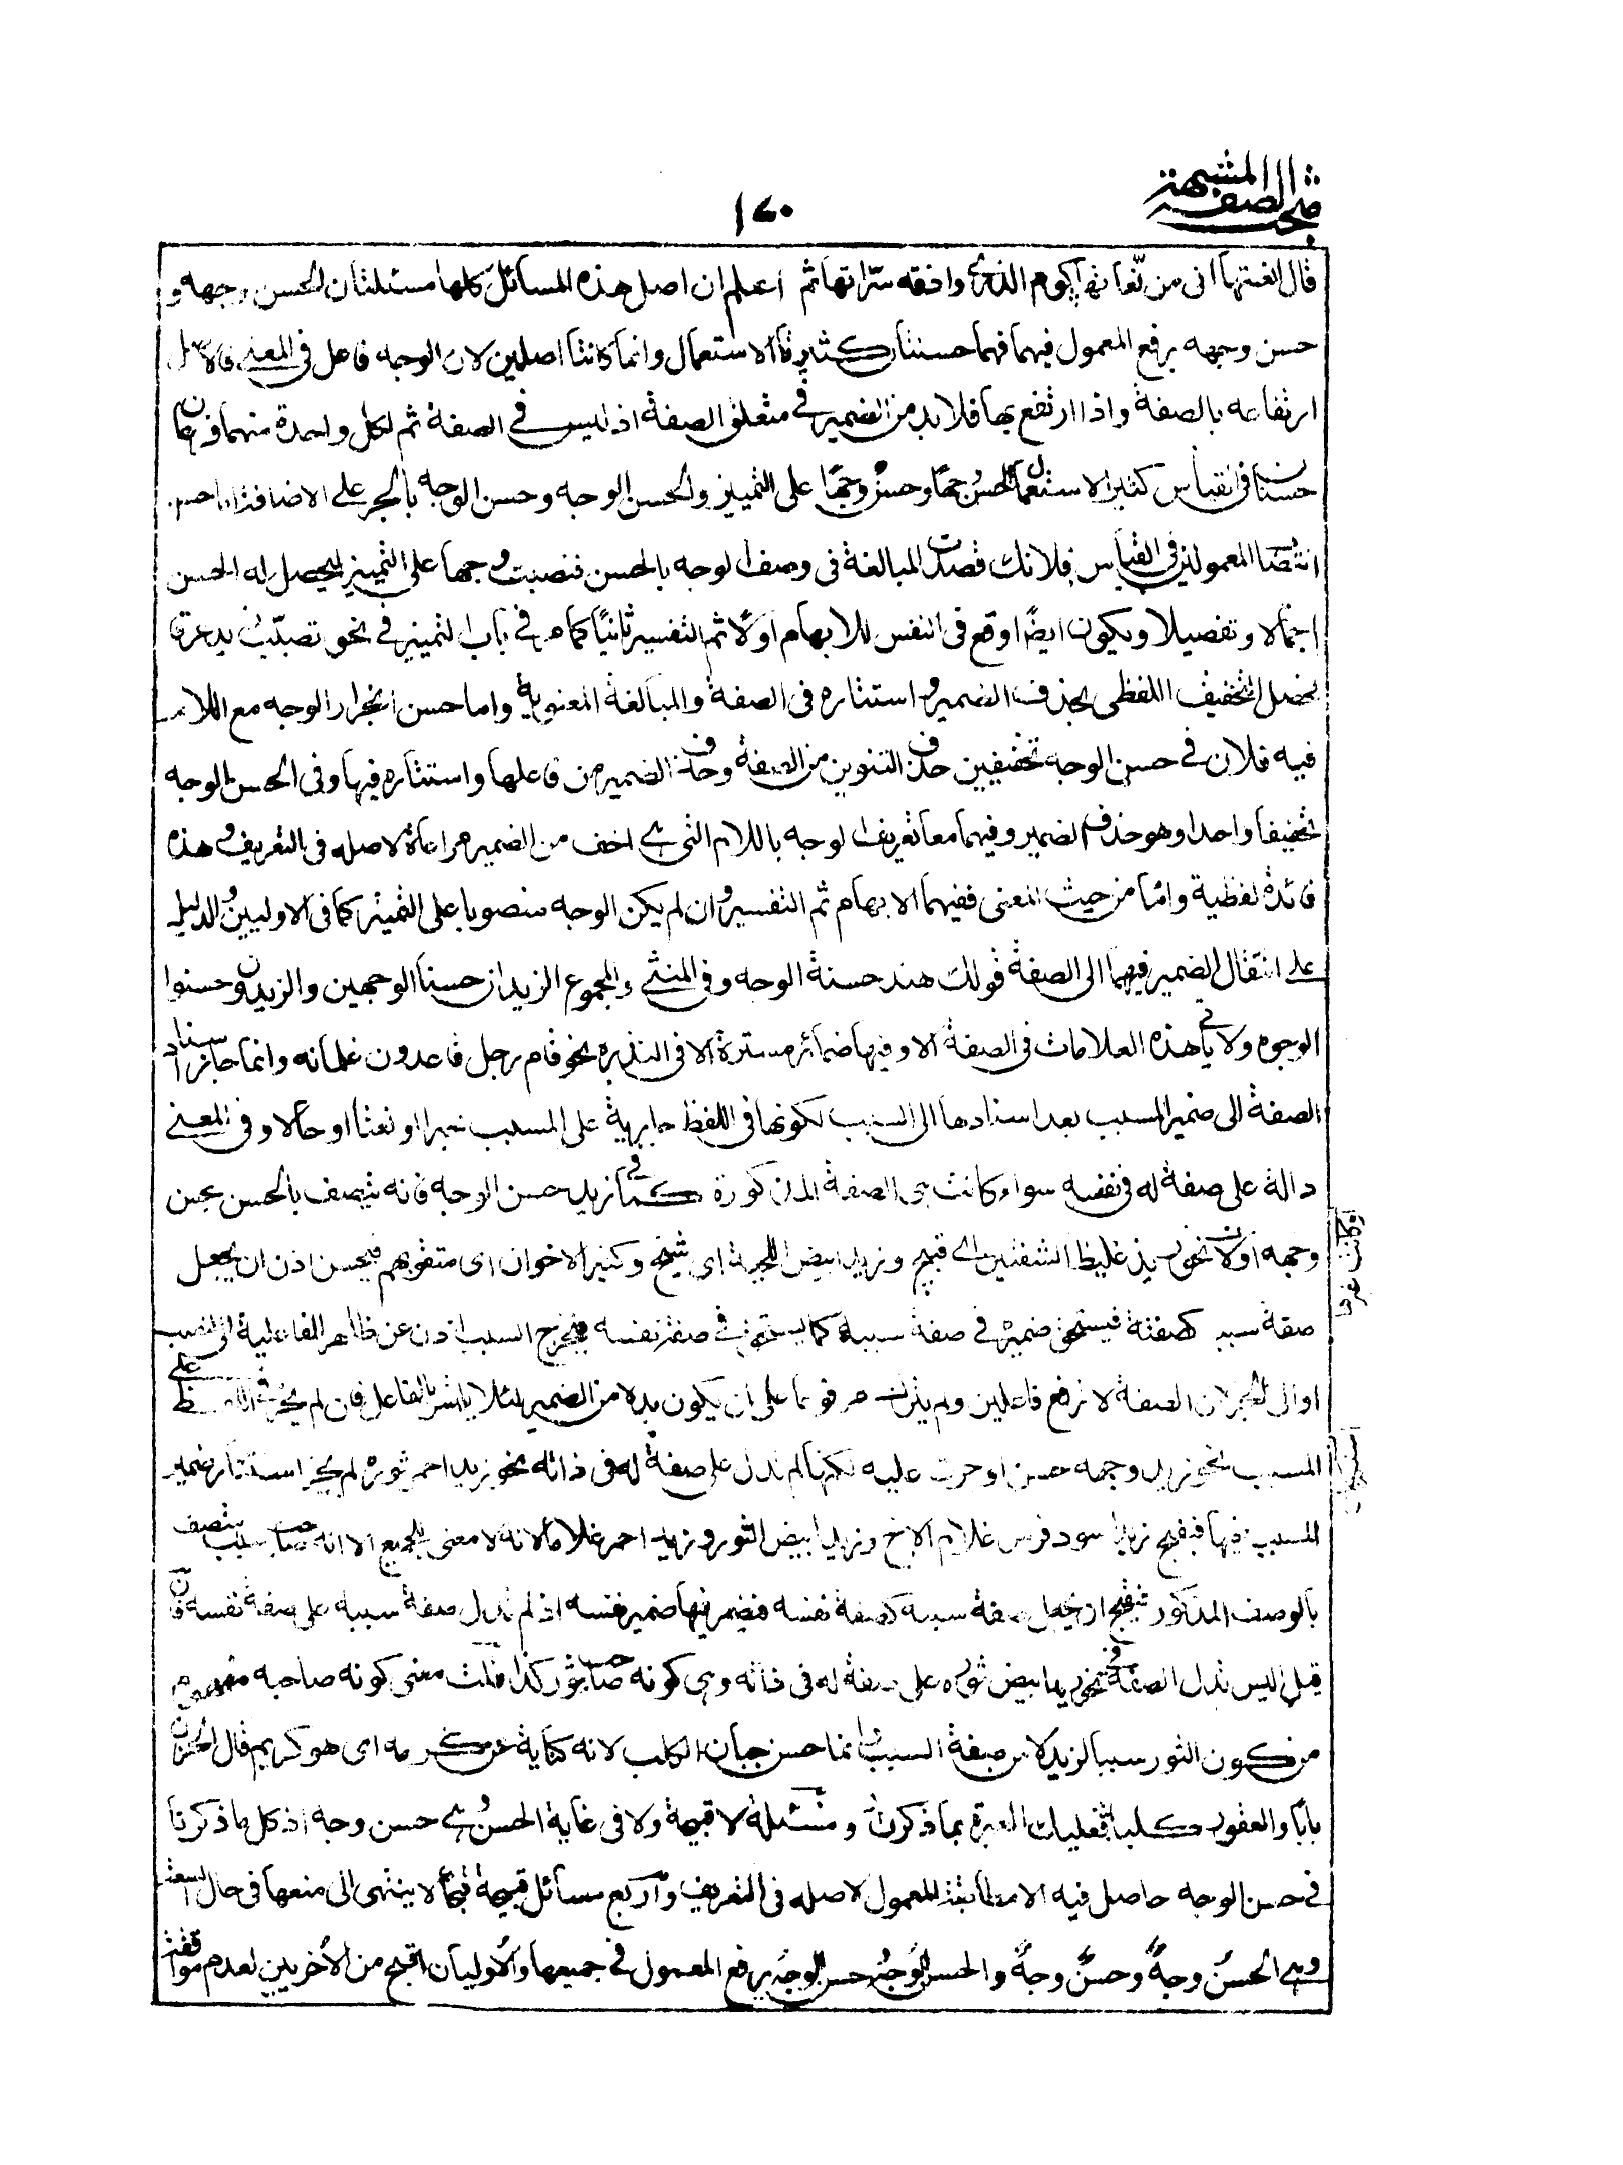 مبحث الصفة المشبهة
١٧٠
قال انعتها انى من نعاتها كوم الذرى وافقه سراتها ثم اعلم ان اصل هذه المسائل كلها مسئلتان الحسن وجهه و
حسن وجهه برفع المعمول فيهما فهما حسنتان كثيرتا الاستعمال وانما كانتا اصلين لان الوجه فاعل فى المعنى فالاصل
ارتفاعه بالصفة واذا ارتفع بها فلا بد من الضمير فى متعلق الصفة اذ ليس فى الصفة ثم لكل واحدة منهما فرعان
حسنان فى القياس كثيرا الاستعمال الحسن وجها وحسن وجها على التمييز والحسن الوجه وحسن الوجه بالجر على الاضافة اما حسن
انتصاب المعمولين فى القياس فلانك قصدت المبالغة فى وصف الوجه بالحسن فنصبت وجها على التمييز ليحصل له الحسن
اجمالا وتفصيلا ويكون ايضا اوقع فى النفس للابهام اولا ثم التفسير ثانيا كما مر فى باب التمييز فى نحو تصبب زيد عرقا
فحصل التخفيف اللفظى بحذف الضمير واستتاره فى الصفة والمبالغة المعنوية واما حسن انجرار الوجه مع اللام
فيه فلان فى حسن الوجه تخفيفين حذف التنوين من الصفة وحذف الضمير من فاعلها واستتاره فيها وفى الحسن الوجه
تخفيفا واحدا وهو حذف الضمير وفيهما معا تعريف الوجه باللام التى هى اخف من الضمير مراعاة لاصله فى التعريف وهذه
فائدة لفظية واما من حيث المعنى ففيهما الابهام ثم التفسير وان لم يكن الوجه منصوبا على التمييز كما فى الاوليين والدليل
على انتقال الضمير فيهما الى الصفة قولك هند حسنة الوجه وفى المثنى والمجموع الزيدان حسنا الوجهين والزيدون حسنوا
الوجوه ولا يأتى هذه العلامات فى الصفة الا وفيها ضمائر مستترة الا فى الندرة نحو قام رجل قاعدون غلمانه وانما جاز اسناد
الصفة الى ضمير المسبب بعد اسنادها الى السبب لكونها فى اللفظ جارية على المسبب خبرا او نعتا او حالا وفى المعنى
دالة على صفة له فى نفسه سواء كانت هى الصفة المذكورة كما فى زيد حسن الوجه فانه يتصف بالحسن بحسن
وجهه او لا نحو زيد غليظ الشفتين اى قبيح وزيد ابيض اللحية اى شيخ وكثير الاخوان اى متقو بهم فيحسن اذن ان يجعل
صفة سببه كصفته فيستكن ضميره فى صفة سببه كما يستكن فى صفة نفسه فيخرج السبب اذن عن ظاهر الفاعلية الى النصب
او الى الجر لان الصفة لا ترفع فاعلين ولم يترك مرفوعا على ان يكون بدلا من الضمير لئلا يلتبس بالفاعل فان لم يجر فى اللفظ على
المسبب نحو زيد وجهه حسن او جرت عليه لكنها لم تدل على صفة له فى ذاته نحو زيد احمر ثوره لم يجز استتار ضمير
المسبب فيها فيقبح زيد اسود فرس غلام الاخ وزيد ابيض الثور وزيد احمر غلاما لانه لا معنى للجميع الا انه صاحب سبب متصف
بالوصف المذكور فيقبح ان يجعل صفة سببه كصفة نفسه فيضمر فيها ضمير نفسه اذ لم تدل صفة سببه على صفة نفسه فان
قيل اليس تدل الصفة فى نحو زيد ابيض ثوره على صفة له فى ذاته وهى كونه صاحب ثور كذا قلت معنى كونه صاحبه مفهوم
من كون الثور سببا لزيد لا من صفة السبب وانما حسن جبان الكلب لانه كناية عن كرمه اى هو كريم قال الحزن
بابا والعقور كلبا فعليك العبرة بما ذكرت ومسئلة لا قبيحة ولا فى غاية الحسن وهى حسن وجه اذ كل ما ذكرنا
فى حسن الوجه حاصل فيه الا مطابقة المعمول لاصله فى التعريف واربع مسائل قبيحة قبحا لا ينتهى الى منعها فى حال السعة
وهى الحسن وجه وحسن وجه والحسن الوجه وحسن الوجه برفع المعمول فى جميعها والاوليان اقبح من الاخريين لعدم موافقة